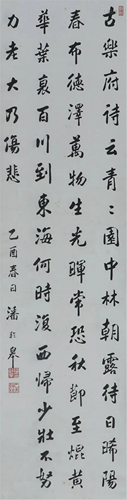 古樂府詩云青々園中林朝露待日晞陽
春布德澤萬物生光暉常恐秋節至焜黃
華葉衰百川到東海何時復西歸少壯不努
力老大乃傷悲
乙酉春日潘